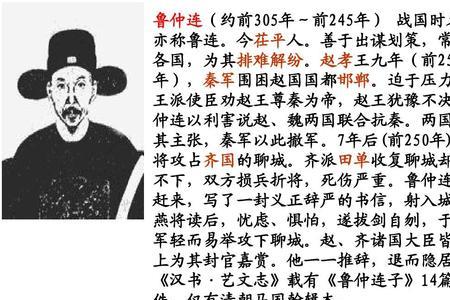 鲁仲连（约前305年～前245年） 战国时
亦称鲁连。今茌平人。善于出谋划策，常
各国，为其排难解纷。赵孝王九年（前25
年），秦军围困赵国国都邯郸。迫于压力
王派使臣劝赵王尊秦为帝，赵王犹豫不决
仲连以利害说赵、魏两国联合抗秦。两国
其主张，秦军以此撤军。7年后(前250年)
将攻占齐国的聊城。齐派田单收复聊城却
不下，双方损兵折将，死伤严重。鲁仲连
赶来，写了一封义正辞严的书信，射入城
燕将读后，忧虑、惧怕，遂拔剑自刎，于
军轻而易举攻下聊城。赵、齐诸国大臣皆
上为其封官嘉赏。他一一推辞，退而隐居
《汉书·艺文志》载有《鲁仲连子》14篇